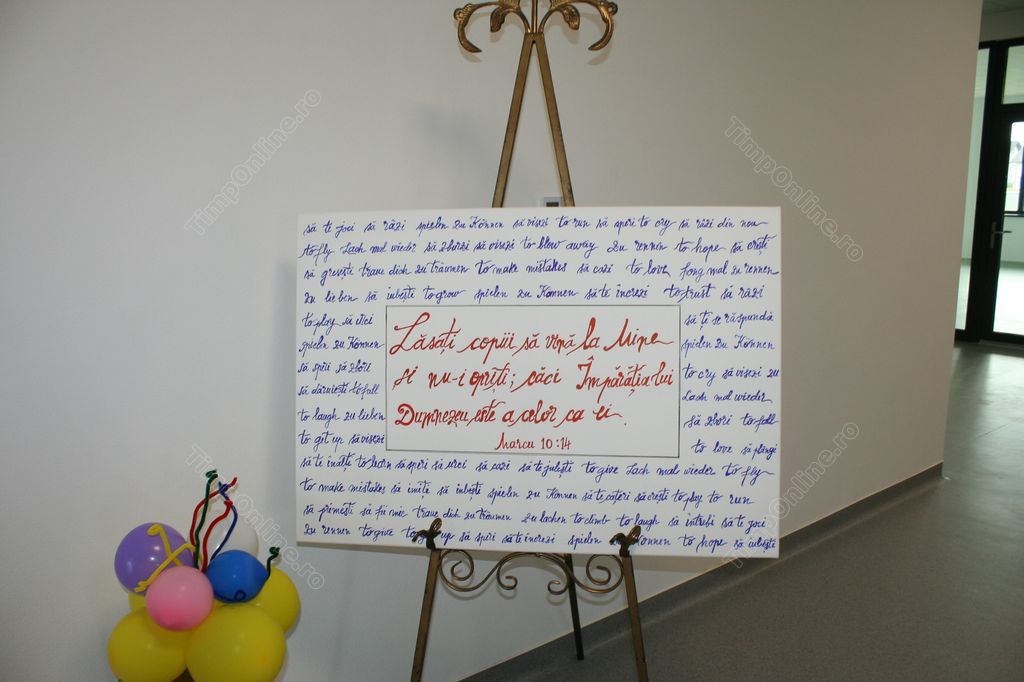 să te joci să râzi spielen zu Können să visezi to run să speri to cry să râzi din nou
to fly Lach mal wieder să zbori să visezi to blow away zu rennen to hope să crești
să greșești traue dich zu träumen to make mistakes să cazi to love fang mal zu rennen
zu lieben să iubești to grow spielen zu Können să te încrezi to trust să râzi
to play să urci
spielen zu Können
să speri să zbori
să dăruiești to fall
to laugh zu lieben
to get up să visezi
Lăsați copiii să vină la Mine
și nu-i opriți; căci Împărăția lui
Dumnezeu este a celor ca ei.
Marcu 10:14
să ți se răspundă
spielen zu Können
to cry să visezi zu
Lach mal wieder
să zbori to fall
to love să plângi
să te înalți to learn să speri să urci să cazi să te julești to give Lach mal wieder to fly
to make mistakes să imiți să iubești spielen zu Können să te cațeri să crești to play to run
să primești să fii mic traue dich zu träumen zu lachen to climb to laugh să întrebi să te joci
zu rennen to give to get up să speri să te încrezi spielen zu Können to hope să iubești
TimpOnline.ro
TimpOnline.ro
TimpOnline.ro
TimpOnline.ro